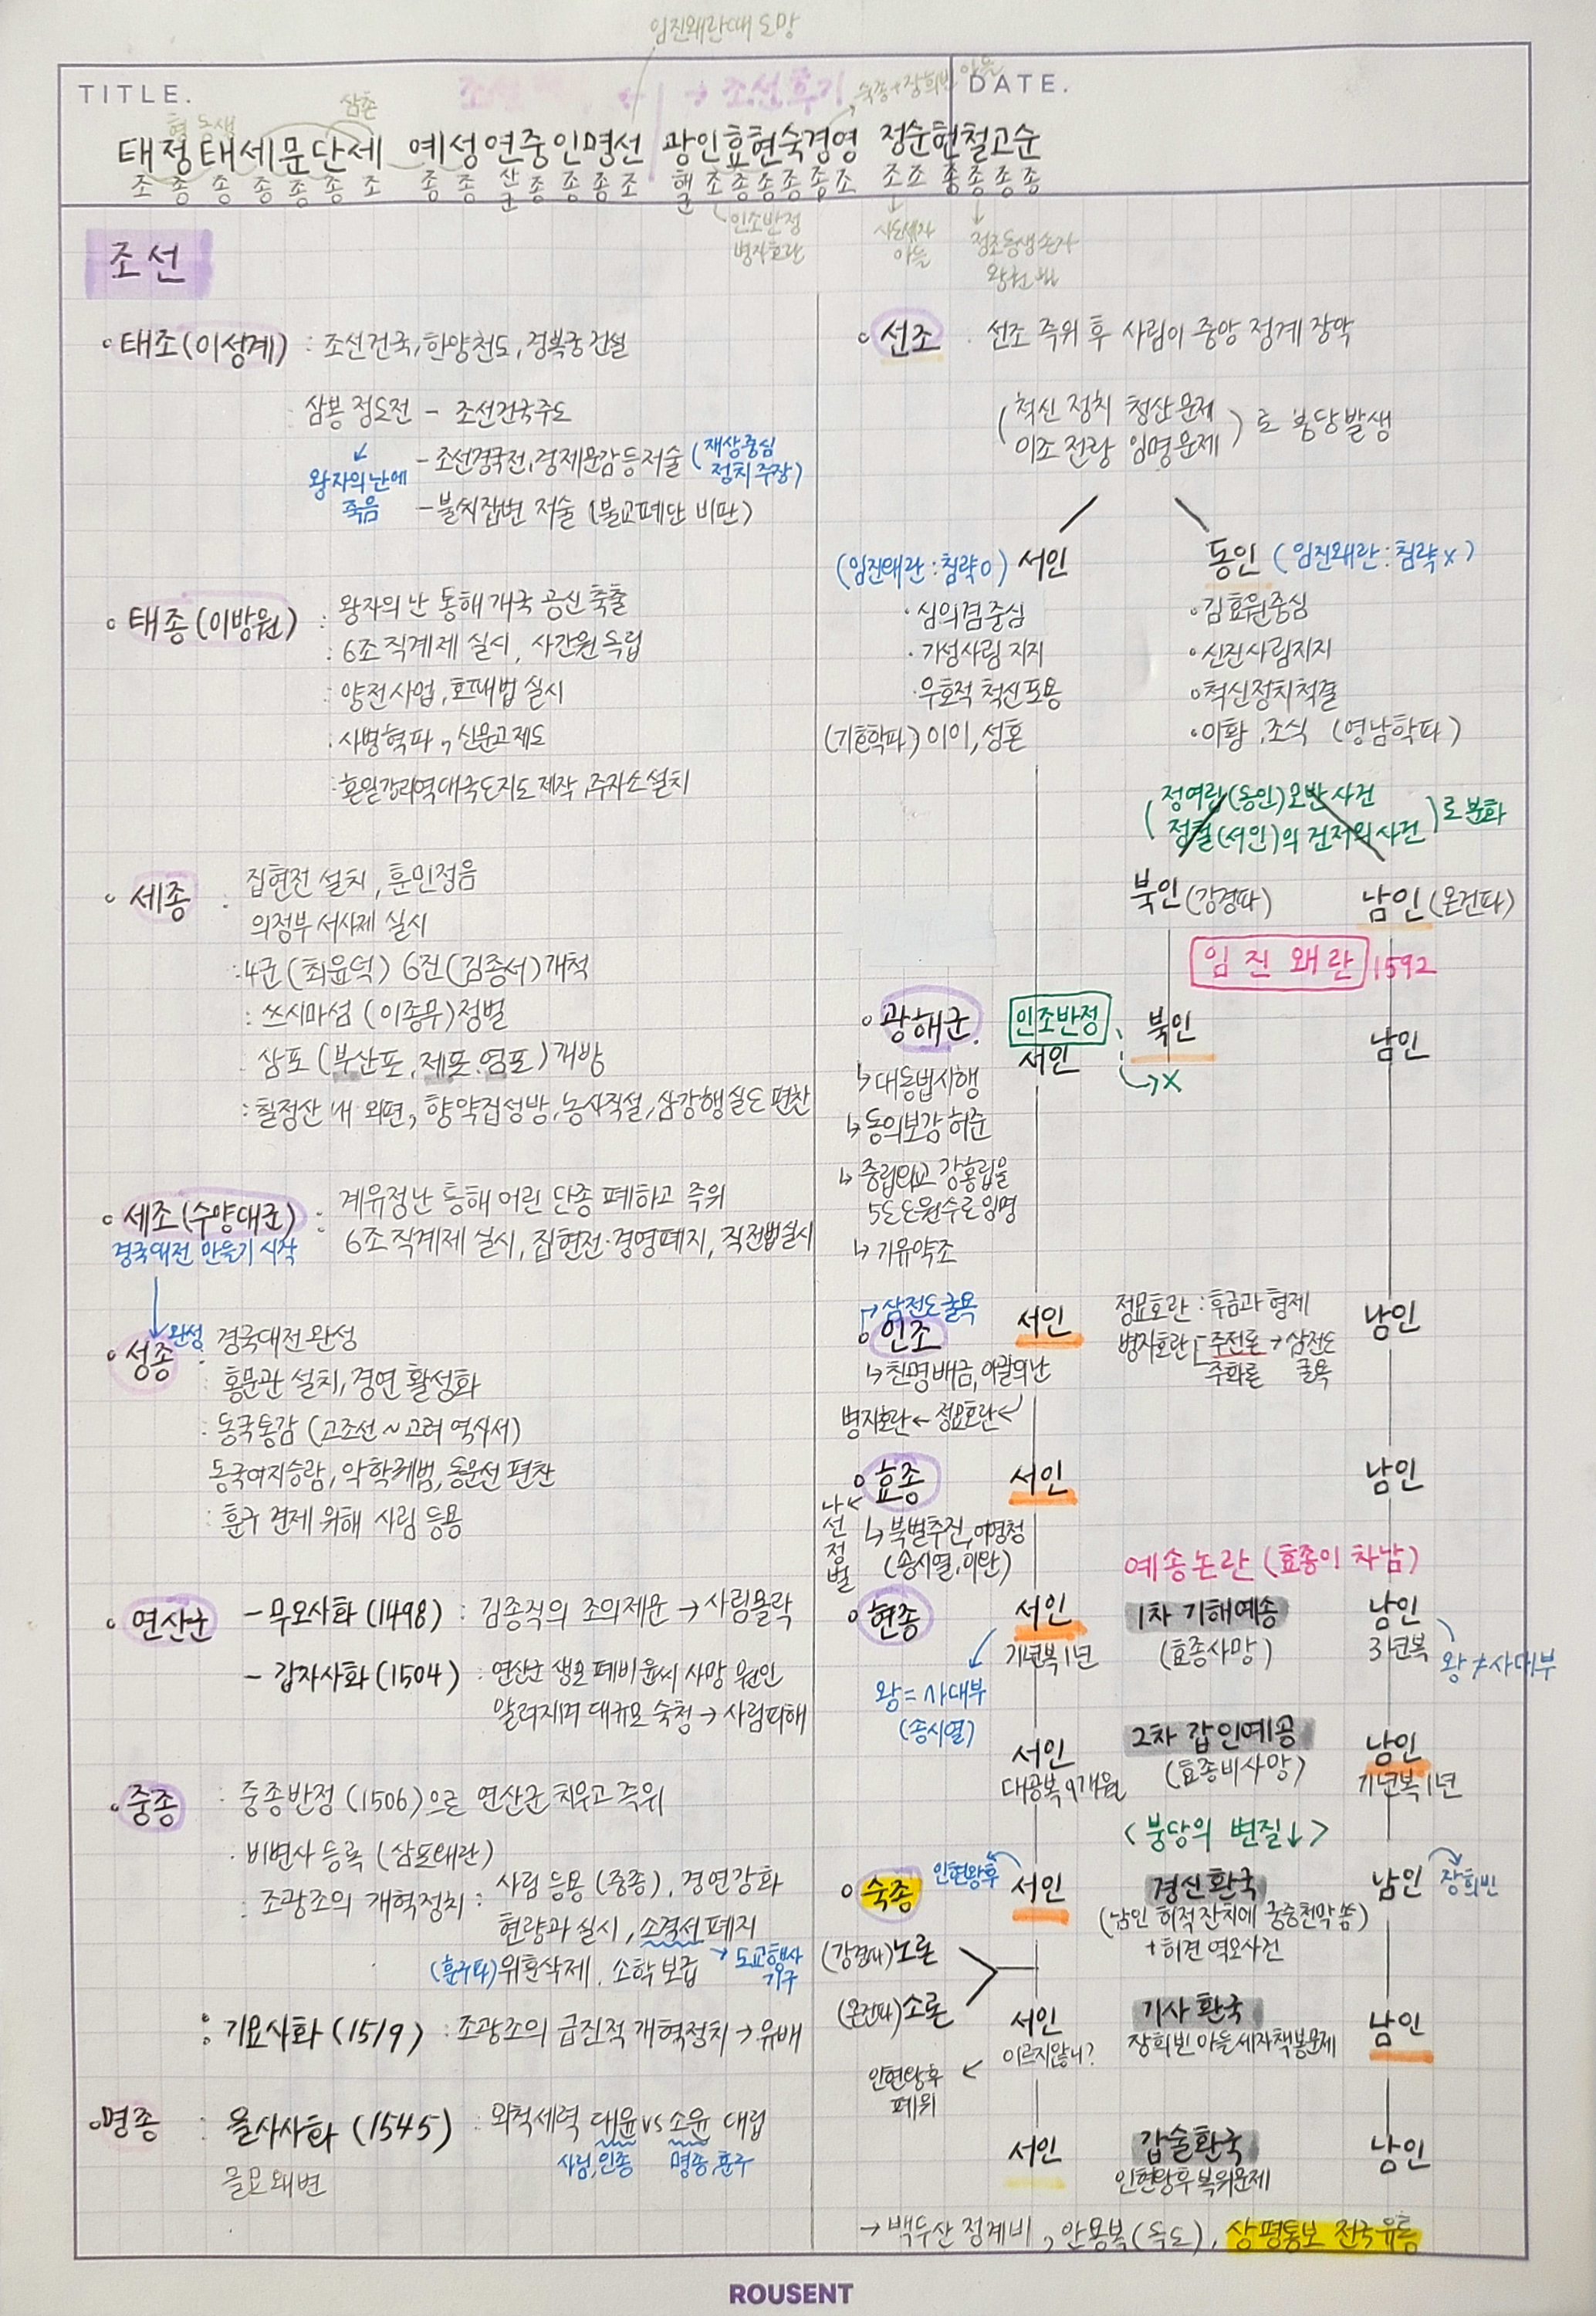 임진왜란때 도망
TITLE.
조선
← → 조선후기
숙종+장희빈 아들
DATE.
형 동생 삼촌
태정태세문단세 예성연중인명선 광인효현숙경영 정순헌철고순
조 종 종 종 종 종 조 종 종 산군 종 종 종 조 해군 조 종 종 종 종 조 조 조 종 종 종 종
인조반정
병자호란
사도세자
아들
정조동생손자
조선
태조(이성계) : 조선건국, 한양천도, 경복궁건설
삼봉 정도전 - 조선건국주도
↙ - 조선경국전, 경제문감등저술 (재상중심
정치주장)
왕자의난에
죽음
- 불씨잡변 저술 (불교폐단 비판)
태종(이방원) : 왕자의 난 통해 개국 공신 축출
: 6조 직계제 실시, 사간원 독립
: 양전사업, 호패법 실시
· 사병혁파, 신문고제도
: 혼일강리역대국도지도 제작, 주자소 설치
세종 : 집현전 설치, 훈민정음
의정부 서사제 실시
: 4군(최윤덕) 6진(김종서)개척
: 쓰시마섬 (이종무)정벌
: 삼포 (부산포, 제포, 염포)개방
: 칠정산 내 외편, 향약집성방, 농사직설, 삼강행실도 편찬
세조(수양대군) : 계유정난 통해 어린 단종 폐하고 즉위
6조 직계제 실시, 집현전·경영폐지, 직전법실시
경국대전 만들기 시작
완성
성종 : 경국대전 완성
홍문관 설치, 경연 활성화
: 동국통감 (고조선~고려 역사서)
동국여지승람, 악학궤범, 동문선 편찬
: 훈구 견제 위해 사림 등용
연산군 - 무오사화(1498) : 김종직의 조의제문 → 사림몰락
- 갑자사화(1504) : 연산군 생모 폐비윤씨 사망 원인
알려지며 대규모 숙청 → 사림피해
중종 : 중종반정(1506)으로 연산군 치우고 즉위
· 비변사 등록 (삼포왜란)
: 조광조의 개혁정치 : 사림 등용 (중종), 경연강화
현량과 실시, 소격서 폐지
→ 도교행사
기구
(훈구파)위훈삭제, 소학보급
: 기묘사화(1519) : 조광조의 급진적 개혁정치 → 유배
명종 : 을사사화(1545) : 외척세력 대윤 vs 소윤 대립
사림,인종 명종,훈구
을묘왜변
선조 · 선조 즉위 후 사림이 중앙 정계 장악
(척신 정치 청산문제
이조 전랑 임명문제) 로 붕당발생
(임진왜란:침략O) 서인
동인 (임진왜란:침략X)
· 심의겸중심
· 기성사림지지
우호적 척신포용
(기호학파) 이이, 성혼
· 김효원중심
· 신진사림지지
· 척신정치척결
· 이황, 조식 (영남학파)
(정여립(동인)모반사건
정철(서인)의 건저의사건)로 분화
북인(강경파) 남인(온건파)
임진왜란 1592
광해군 인조반정 서인 북인 → X 남인
↳ 대동법시행
↳ 동의보감 허준
↳ 중립외교 강홍립을
5도도원수로 임명
↳ 기유약조
→ 삼전도굴욕
인조 서인 남인
정묘호란 : 후금과 형제
병자호란 [주전론 → 삼전도
주화론 굴욕
↳ 친명배금, 이괄의난
병자호란 ← 정묘호란 ↙
효종 서인 남인
나선정벌
↳ 북벌추진, 어영청
(송시열, 이완)
예송논란 (효종이 차남)
현종 서인 1차 기해예송 남인
기년복1년 (효종사망) 3년복
왕=사대부
(송시열)
왕≠사대부
서인 2차 갑인예공 남인
대공복 9개월 (효종비사망) 기년복1년
<붕당의 변질↓>
숙종 인현왕후 서인 경신환국 남인 장희빈
(남인 허적 잔치에 궁중천막 씀)
+ 허견 역모사건
(강경파)노론
(온건파)소론
서인 기사환국 남인
이르지않니? 장희빈 아들세자책봉문제
인현왕후
폐위
서인 갑술환국 남인
인현왕후복위문제
→ 백두산 정계비, 안용복(독도), 상평통보 전국유통
ROUSENT